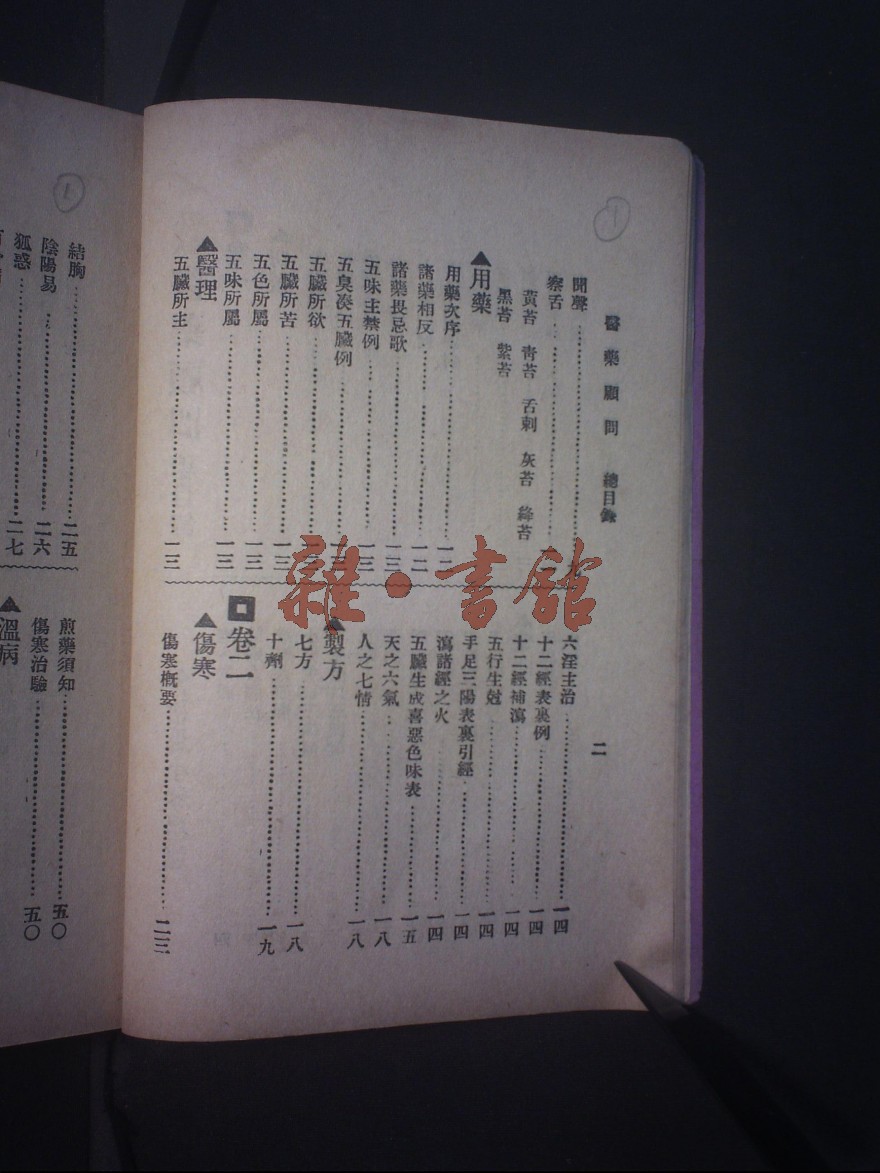 醫藥顧問 總目錄
二
聞聲
察舌
黃苔 青苔 舌刺 灰苔 絳苔
黑苔 紫苔
▲用藥
用藥次序 一二
諸藥相反 一二
諸藥畏忌歌 一三
五味主禁例 一三
五臭湊五臟例
五臟所欲
五臟所苦 一三
五色所屬 一三
五味所屬 一三
▲醫理
五臟所主 一三
六淫主治 一四
十二經表裏例 一四
十二經補瀉 一四
五行生尅 一四
手足三陽表裏引經 一四
瀉諸經之火 一四
五臟生成喜惡色味表 一五
天之六氣 一八
人之七情 一八
▲製方
七方 一八
十劑 一九
卷二
▲傷寒
傷寒概要 二三
結胸 二五
陰陽易 二六
狐惑 二七
煎藥須知 五〇
傷寒治驗 五〇
▲溫病
雜·書館